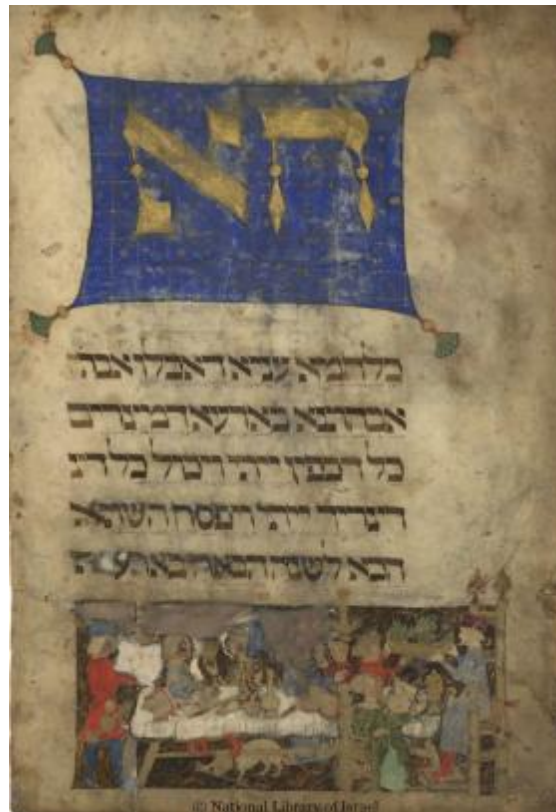 הא
כלחמא עניא דאכלו אבה
אבהתנא בארעא דמיצרים
כל דכפין ייתי ויכול כל דצ
דצריך ייתי ויפסח השתא
הכא לשנה הבאה בארעא
(c) National Library of Israel